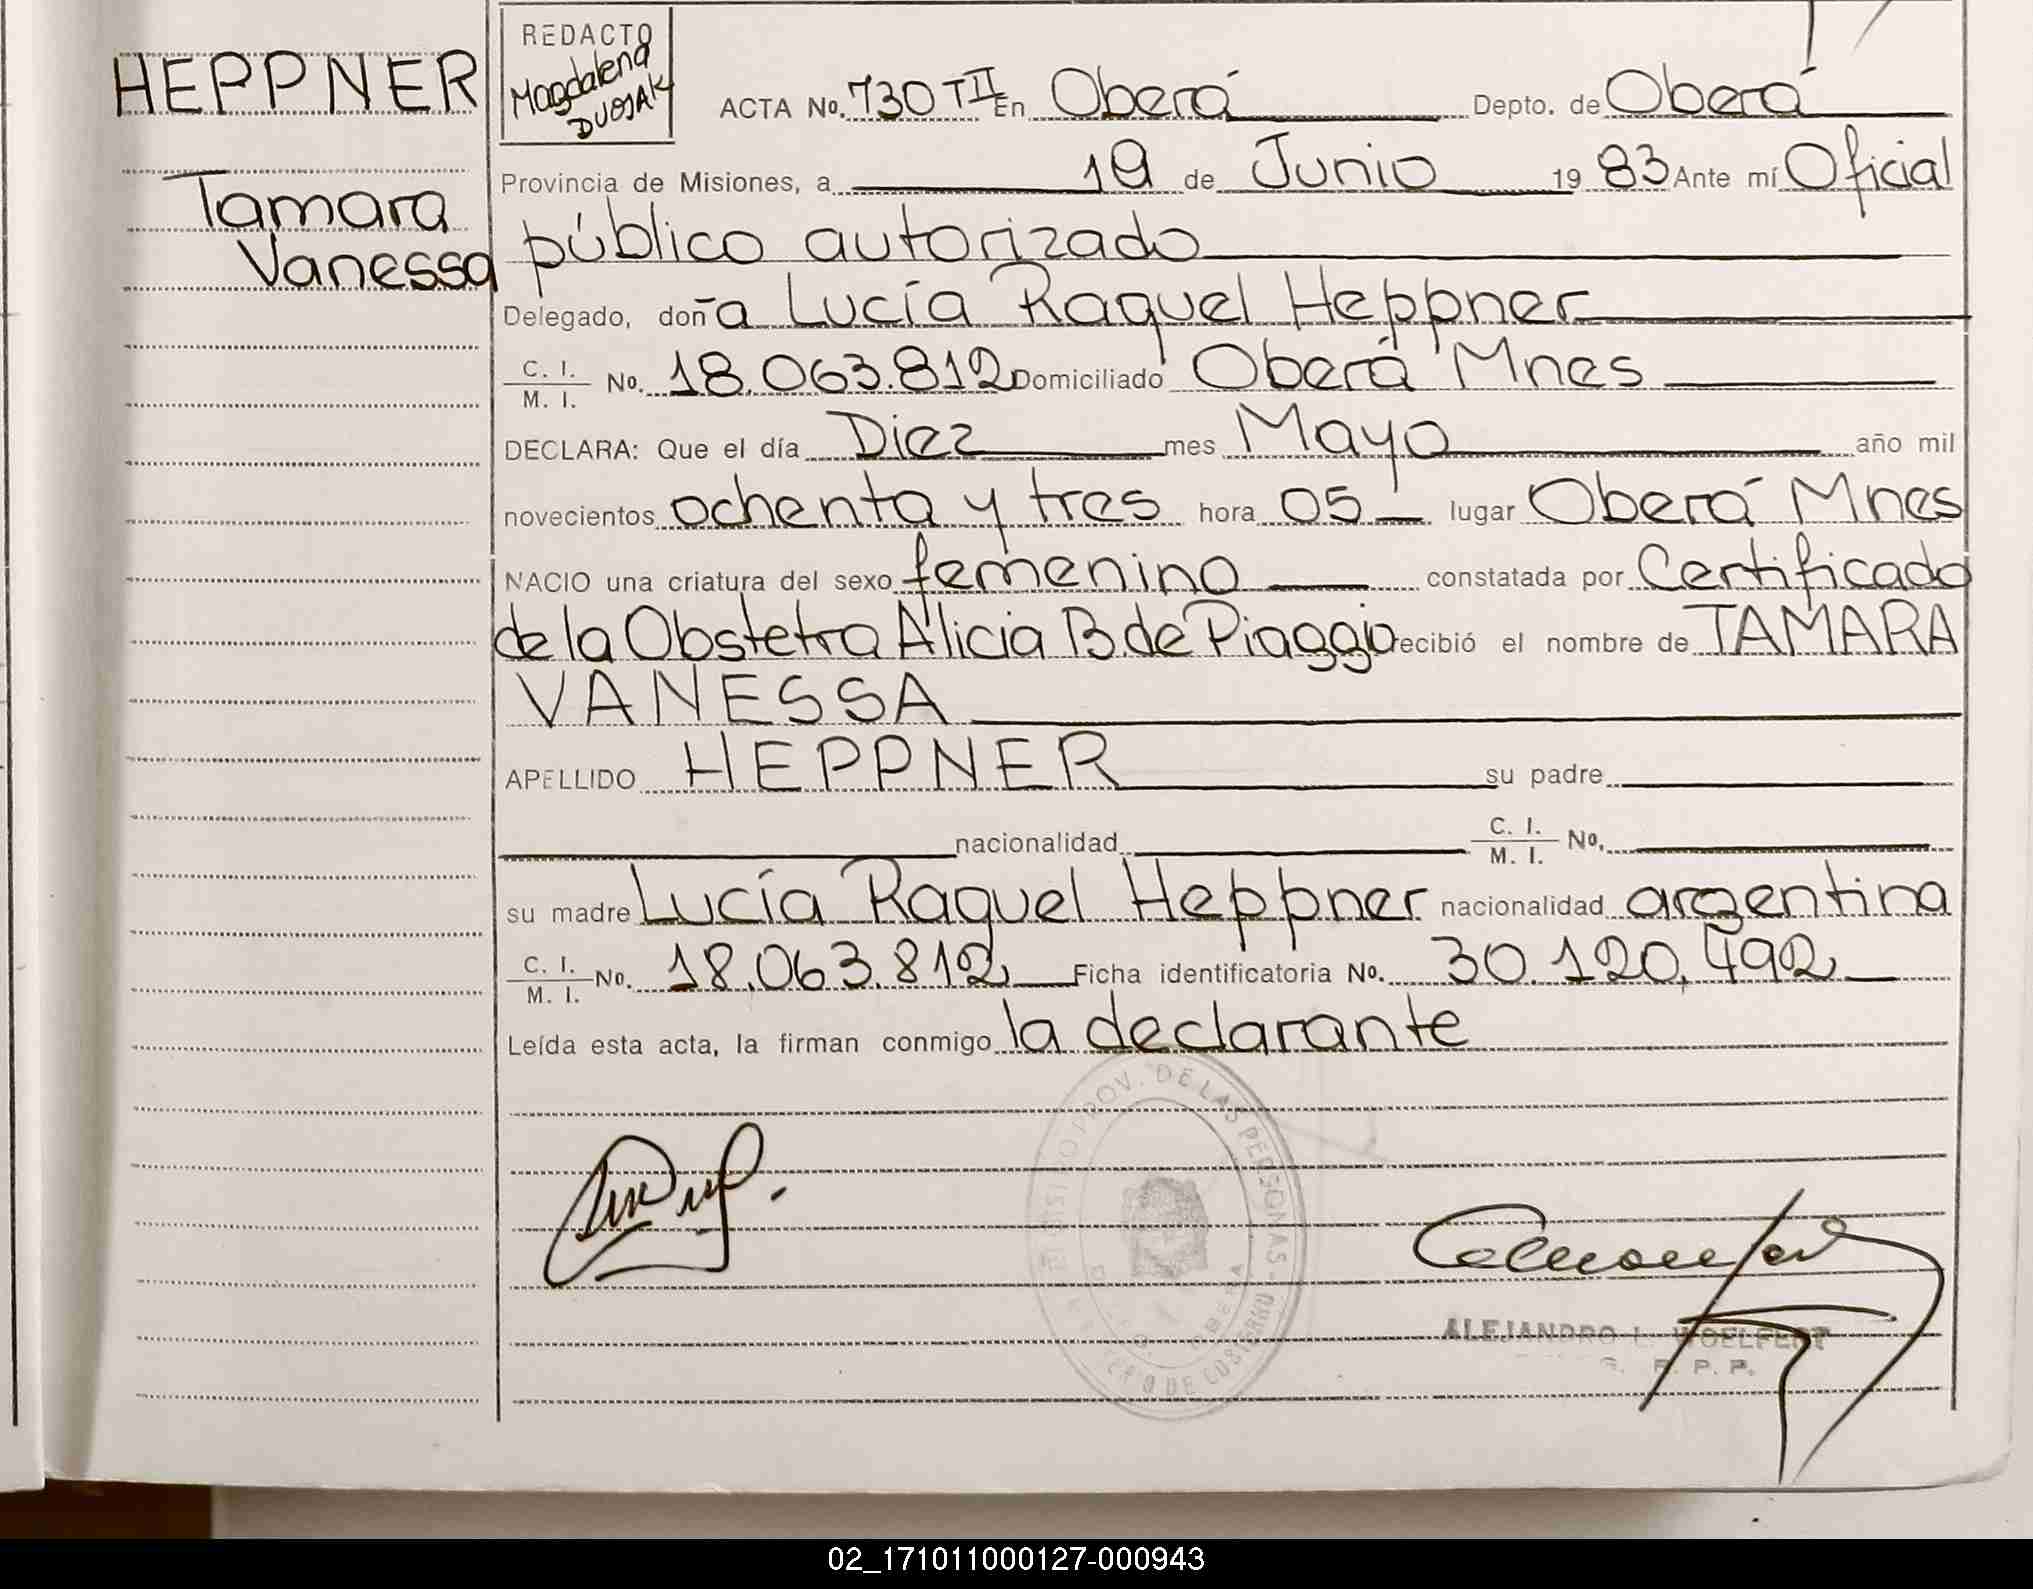 HEPPNER
Tamara
Vanessa
REDACTO
Magdalena
DUOSAK
ACTA No. 730 TII En Oberá Depto. de Oberá
Provincia de Misiones, a 19 de Junio 19 83 Ante mí Oficial
público autorizado
Delegado, doña Lucía Raquel Heppner
C. I. / M. I. No. 18.063.812 Domiciliado Oberá Mnes
DECLARA: Que el día Diez mes Mayo año mil
novecientos ochenta y tres hora 05 lugar Oberá Mnes
NACIO una criatura del sexo femenino constatada por Certificado
de la Obstetra Alicia B. de Piaggio recibió el nombre de TAMARA
VANESSA
APELLIDO HEPPNER su padre
nacionalidad C. I. / M. I. No.
su madre Lucía Raquel Heppner nacionalidad argentina
C. I. / M. I. No. 18.063.812 Ficha identificatoria No. 30.120.492
Leída esta acta, la firman conmigo la declarante
PROV. DE LAS PERSONAS
OBERA
ALEJANDRO L. WOELFERT
02_171011000127-000943